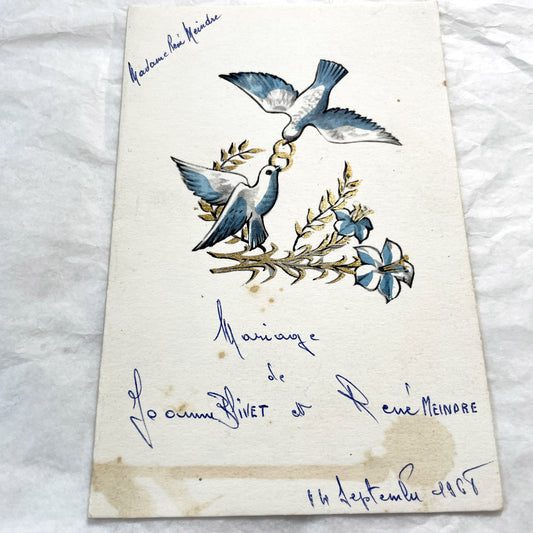 Madame René Meindre
Mariage
de
Joanne RIVET et René MEINDRE
Septembre